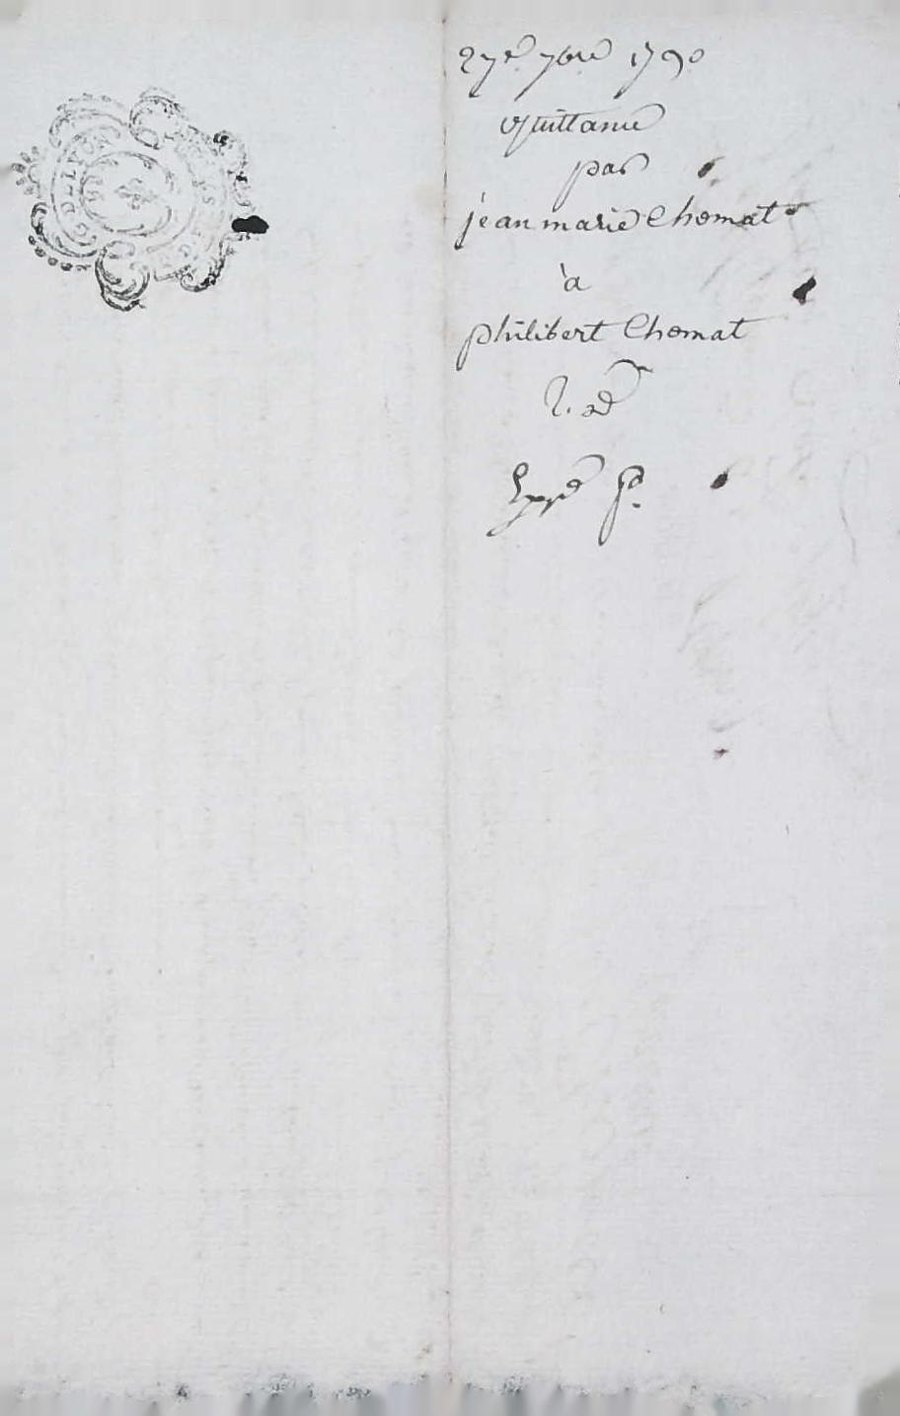 27e 7bre 1790
Quittance
par
jean marie Chomat
à
philibert Chomat
G-D-LYON